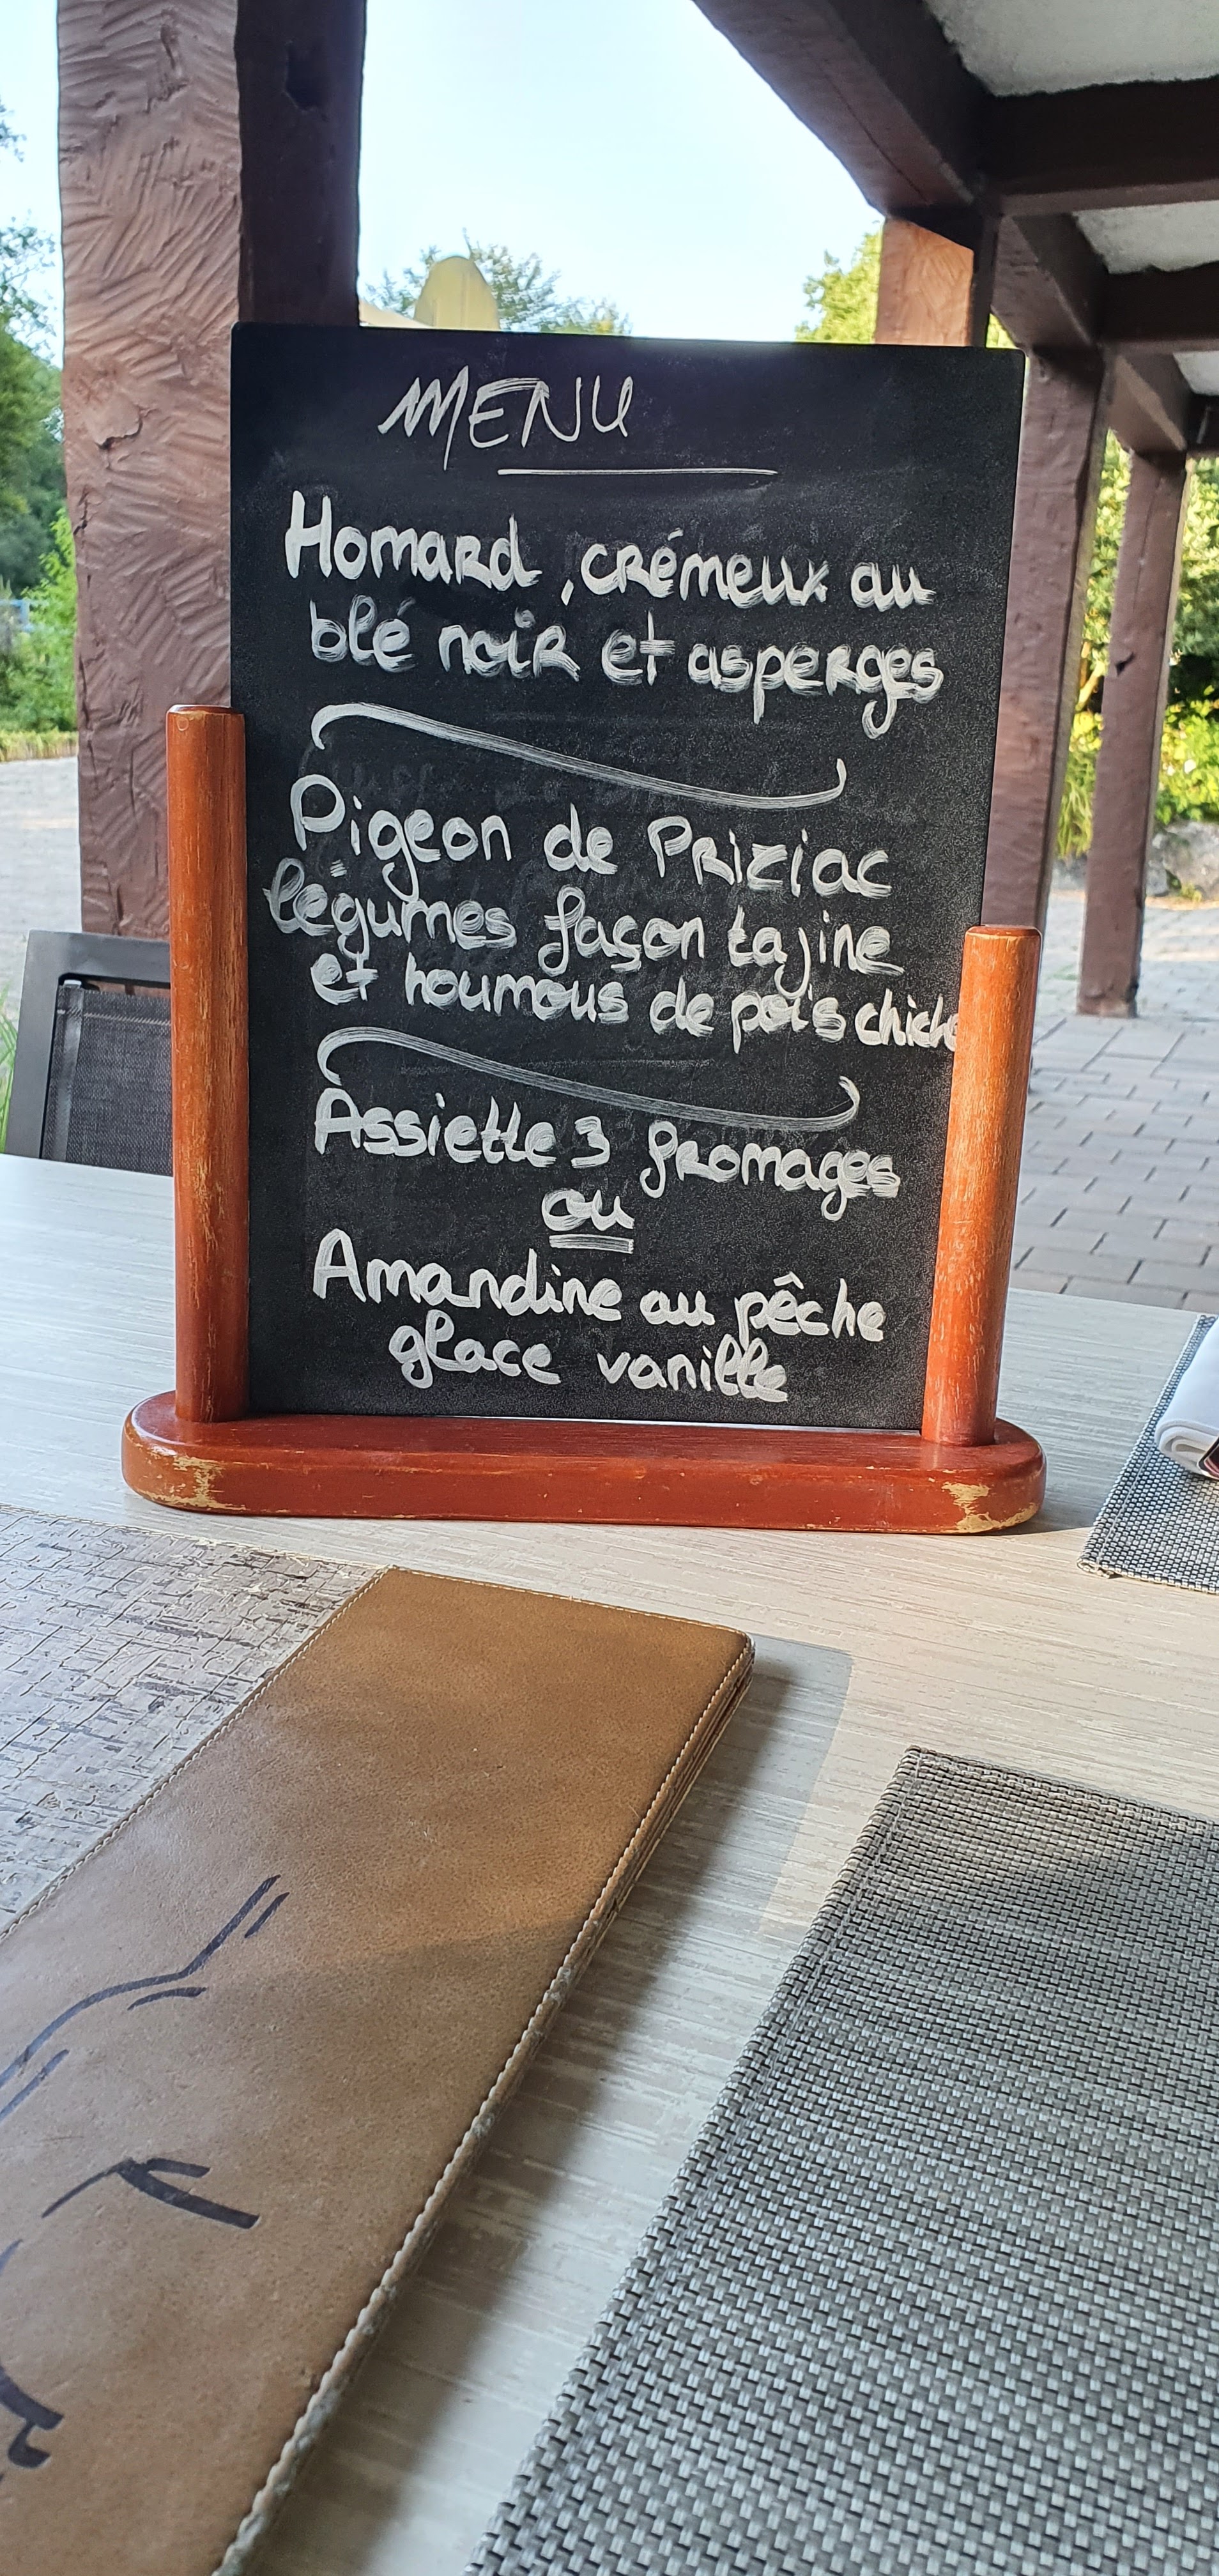 MENU
Homard, crémeux au
blé noir et asperges
Pigeon de Priziac
légumes façon tajine
et houmous de pois chiche
Assiette 3 fromages
ou
Amandine au pêche
glace vanille